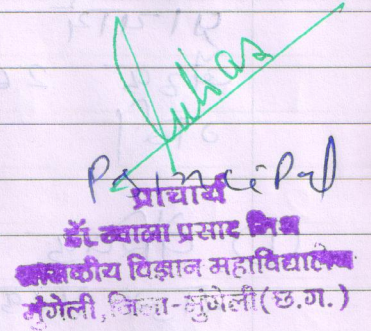 Principal
प्राचार्य
डॉ. ज्वाला प्रसाद मिश्र
शासकीय विज्ञान महाविद्यालय
मुंगेली, जिला-मुंगेली (छ.ग.)